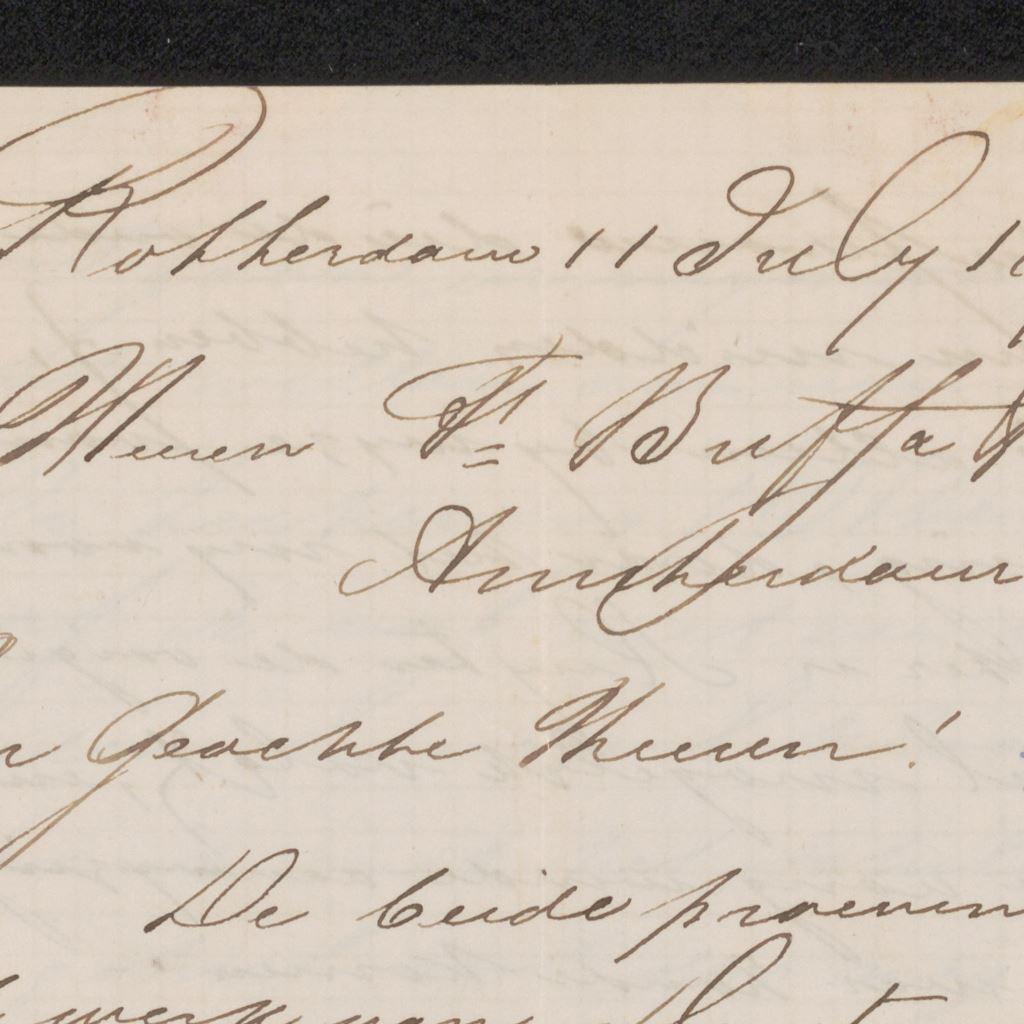 Rotterdam 11 July 18
Heeren Fs Buffa &
Amsterdam
Geachte Heeren!
De beide proeven
werk van